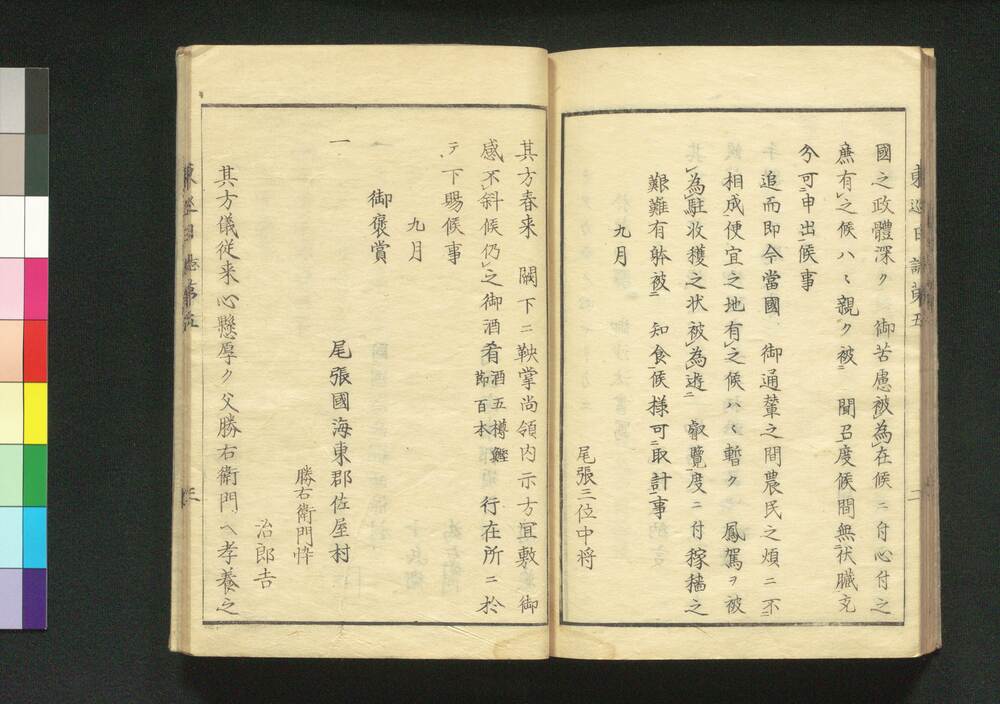 國之政體深ク 御苦慮被為在候ニ付心付之
廉有之候ハヽ親ク被 聞召度候間無伏臟充
分可申出候事
追而即今當國 御通輦之間農民之煩ニ不
相成便宜之地有之候ハヽ暫ク 鳳駕ヲ被
為駐收獲之状被為遊 叡覽度ニ付稼穡之
艱難有躰被 知食候様可取計事
九月
尾張三位中将
其方春来 闕下ニ鞅掌尚領内示方冝敷 御
感不斜候仍之御酒肴酒五樽鰹節百本 行在所ニ於
テ下賜候事
九月
御褒賞
一
尾張國海東郡佐屋村
勝右衛門忰
治郎吉
其方儀従来心懸厚ク父勝右衛門ヘ孝養之